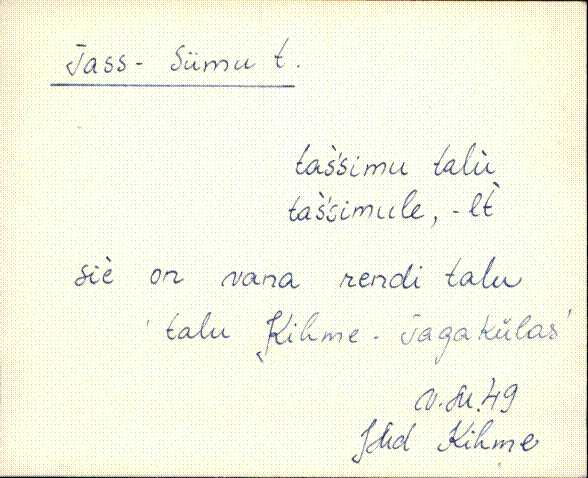 Tass-Sümu t.
taśśimu talù
taśśimule, -lt̀
siè on vana rendi talu
'talu Kihme-Jagakülas'
Kihme